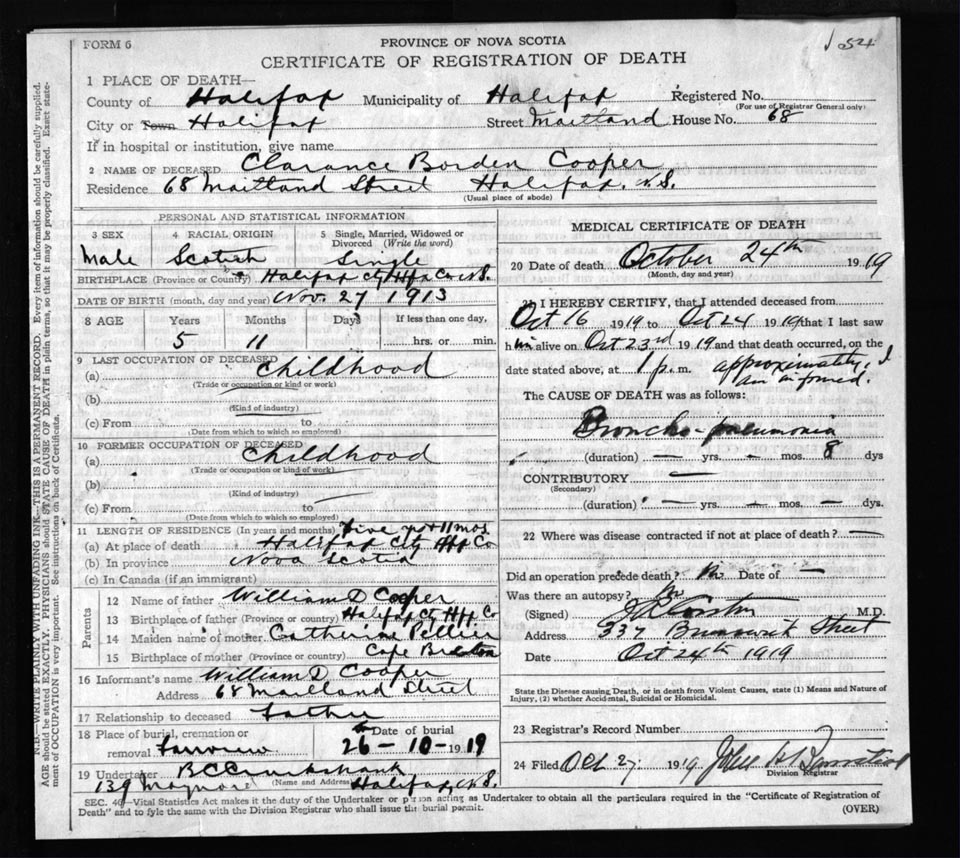 FORM 6
PROVINCE OF NOVA SCOTIA
1054
CERTIFICATE OF REGISTRATION OF DEATH
1 PLACE OF DEATH—
County of Halifax Municipality of Halifax Registered No.
(For use of Registrar General only)
City or Town Halifax Street Maitland House No. 68
If in hospital or institution, give name
2 NAME OF DECEASED Clarance Borden Cooper
Residence 68 Maitland Street Halifax. N.S.
(Usual place of abode)
PERSONAL AND STATISTICAL INFORMATION
3 SEX 4 RACIAL ORIGIN 5 Single, Married, Widowed or Divorced (Write the word)
Male Scotish Single
BIRTHPLACE (Province or Country) Halifax City Hfx Co N.S.
DATE OF BIRTH (month, day and year) Nov. 27 1913
8 AGE Years Months Days If less than one day,
5 11 hrs. or min.
9 LAST OCCUPATION OF DECEASED
(a) Childhood
(Trade or occupation or kind or work)
(b)
(Kind of industry)
(c) From to
(Date from which to which so employed)
10 FORMER OCCUPATION OF DECEASED
(a) Childhood
(Trade or occupation or kind of work)
(b)
(Kind of industry)
(c) From to
(Date from which to which so employed)
11 LENGTH OF RESIDENCE (In years and months) Five yrs 11 mos
(a) At place of death Halifax City Hfx Co
(b) In province Nova Scotia
(c) In Canada (if an immigrant)
Parents
12 Name of father William D Cooper
13 Birthplace of father (Province or country) Halifax Cty Hfx Co
14 Maiden name of mother Catherine
15 Birthplace of mother (Province or country) Cape Breton
16 Informant's name William D Cooper
Address 68 Maitland Street
17 Relationship to deceased Father
18 Place of burial, cremation or removal Fairview Date of burial 26-10-1919
19 Undertaker B C Cruikshank
(Name and Address)
139 Maynard Halifax, N.S.
MEDICAL CERTIFICATE OF DEATH
20 Date of death October 24th 1919
(Month, day and year)
I HEREBY CERTIFY, that I attended deceased from
Oct 16 1919 to Oct 24 1919 that I last saw
him alive on Oct 23rd 1919 and that death occurred, on the
date stated above, at 1 p. m. approximately, I
am informed.
The CAUSE OF DEATH was as follows:
Broncho-pneumonia
(duration) — yrs. — mos. 8 dys
CONTRIBUTORY —
(Secondary)
(duration) — yrs. — mos. — dys.
22 Where was disease contracted if not at place of death? —
Did an operation precede death? No Date of —
Was there an autopsy? No
(Signed) M.D.
Address 337 Brunswick Street
Date Oct 24th 1919
State the Disease causing Death, or in death from Violent Causes, state (1) Means and Nature of
Injury, (2) whether Accidental, Suicidal or Homicidal.
23 Registrar's Record Number
24 Filed Oct 27 1919. John
Division Registrar
SEC. 40—Vital Statistics Act makes it the duty of the Undertaker or person acting as Undertaker to obtain all the particulars required in the "Certificate of Registration of
Death" and to fyle the same with the Division Registrar who shall issue the burial permit.
(OVER)
N.B.—WRITE PLAINLY WITH UNFADING INK—THIS IS A PERMANENT RECORD. Every item of information should be carefully supplied.
AGE should be stated EXACTLY. PHYSICIANS should STATE CAUSE OF DEATH in plain terms, so that it may be properly classified. Exact state-
ment of OCCUPATION is very important. See instructions on back of Certificate.